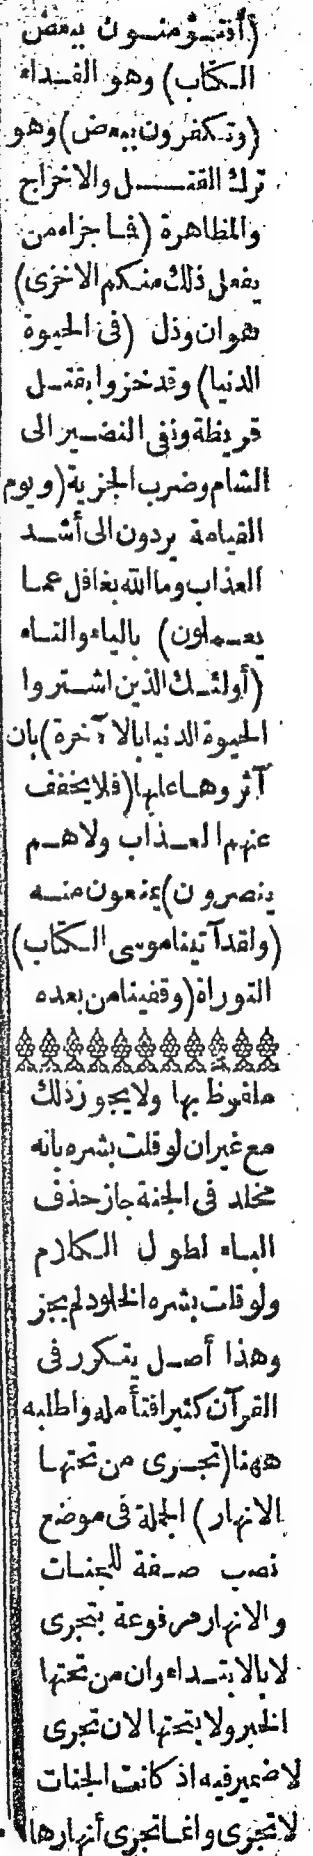 (أفتؤمنون ببعض
الكتاب) وهو الفداء
(وتكفرون ببعض) وهو
ترك القتل والاخراج
والمظاهرة (فما جزاء من
يفعل ذلك منكم الاخزى)
هوان وذل (فى الحيوة
الدنيا) وقد خزوا بقتل
قريظة ونفى النضير الى
الشام وضرب الجزية (ويوم
القيامة يردون الى أشد
العذاب وما الله بغافل عما
يعملون) بالياء والتاء
(أولئك الذين اشتروا
الحيوة الدنيا بالآخرة) بان
آثروها عليها (فلا يخفف
عنهم العذاب ولاهم
ينصرون) يمنعون منه
(ولقد آتينا موسى الكتاب)
التوراة (وقفينا من بعده
ملفوظ بها ولا يجوز ذلك
مع غير ان لو قلت بشره بانه
مخلد فى الجنة جاز حذف
الباء لطول الكلام
ولو قلت بشره الخلود لم يجز
وهذا أصل يتكرر فى
القرآن كثيرا فتأمله واطلبه
ههنا (تجرى من تحتها
الانهار) الجملة فى موضع
نصب صفة للجنات
والانهار مرفوعة بتجرى
لا بالابتداء وان من تحتها
الخبر ولا بتحتها لان تجرى
لا ضمير فيه اذ كانت الجنات
لا تجرى وانما تجرى أنهارها